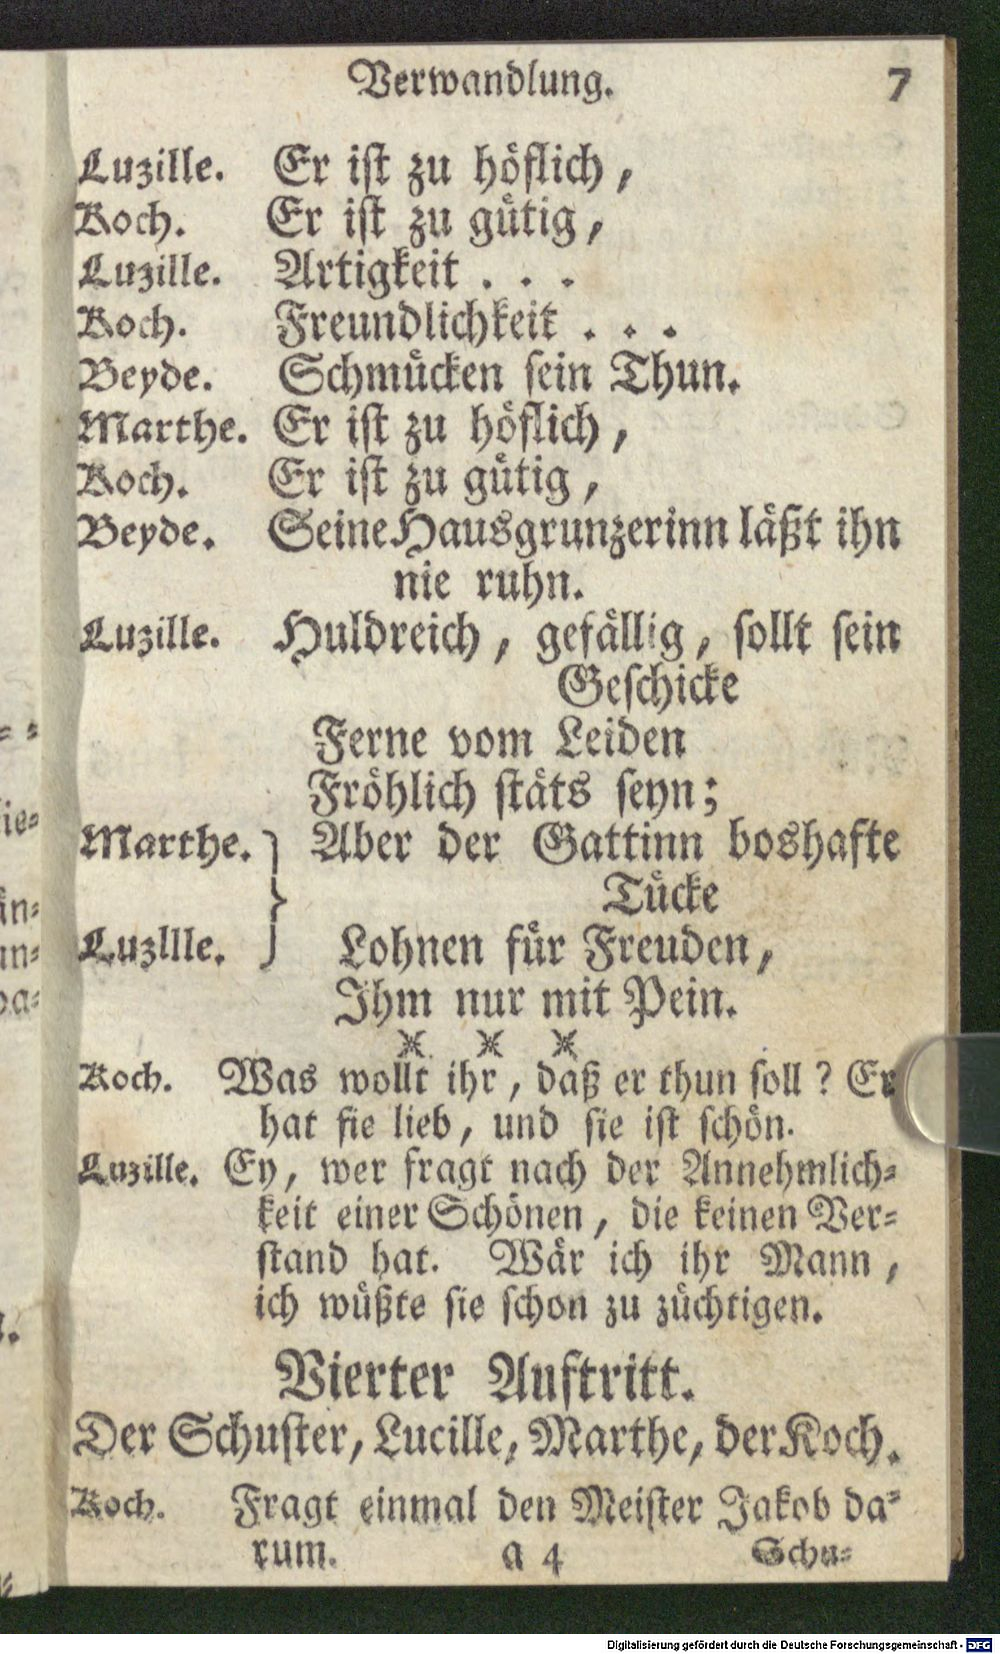 Verwandlung. 7
Luzille. Er ist zu höflich,
Koch. Er ist zu gütig,
Luzille. Artigkeit . . .
Koch. Freundlichkeit . . .
Beyde. Schmücken sein Thun.
Marthe. Er ist zu höflich,
Koch. Er ist zu gütig,
Beyde. Seine Hausgrunzerinn läßt ihn
nie ruhn.
Luzille. Huldreich, gefällig, sollt sein
Geschicke
Ferne vom Leiden
Fröhlich stäts seyn;
Marthe. Aber der Gattinn boshafte
Tücke
Luzllle. Lohnen für Freuden,
Ihm nur mit Pein.
Koch. Was wollt ihr, daß er thun soll? Er
hat sie lieb, und sie ist schön.
Luzille. Ey, wer fragt nach der Annehmlich-
keit einer Schönen, die keinen Ver-
stand hat. Wär ich ihr Mann,
ich wüßte sie schon zu züchtigen.
Vierter Auftritt.
Der Schuster, Lucille, Marthe, der Koch.
Koch. Fragt einmal den Meister Jakob da-
rum. a 4 Schu-
Digitalisierung gefördert durch die Deutsche Forschungsgemeinschaft - DFG